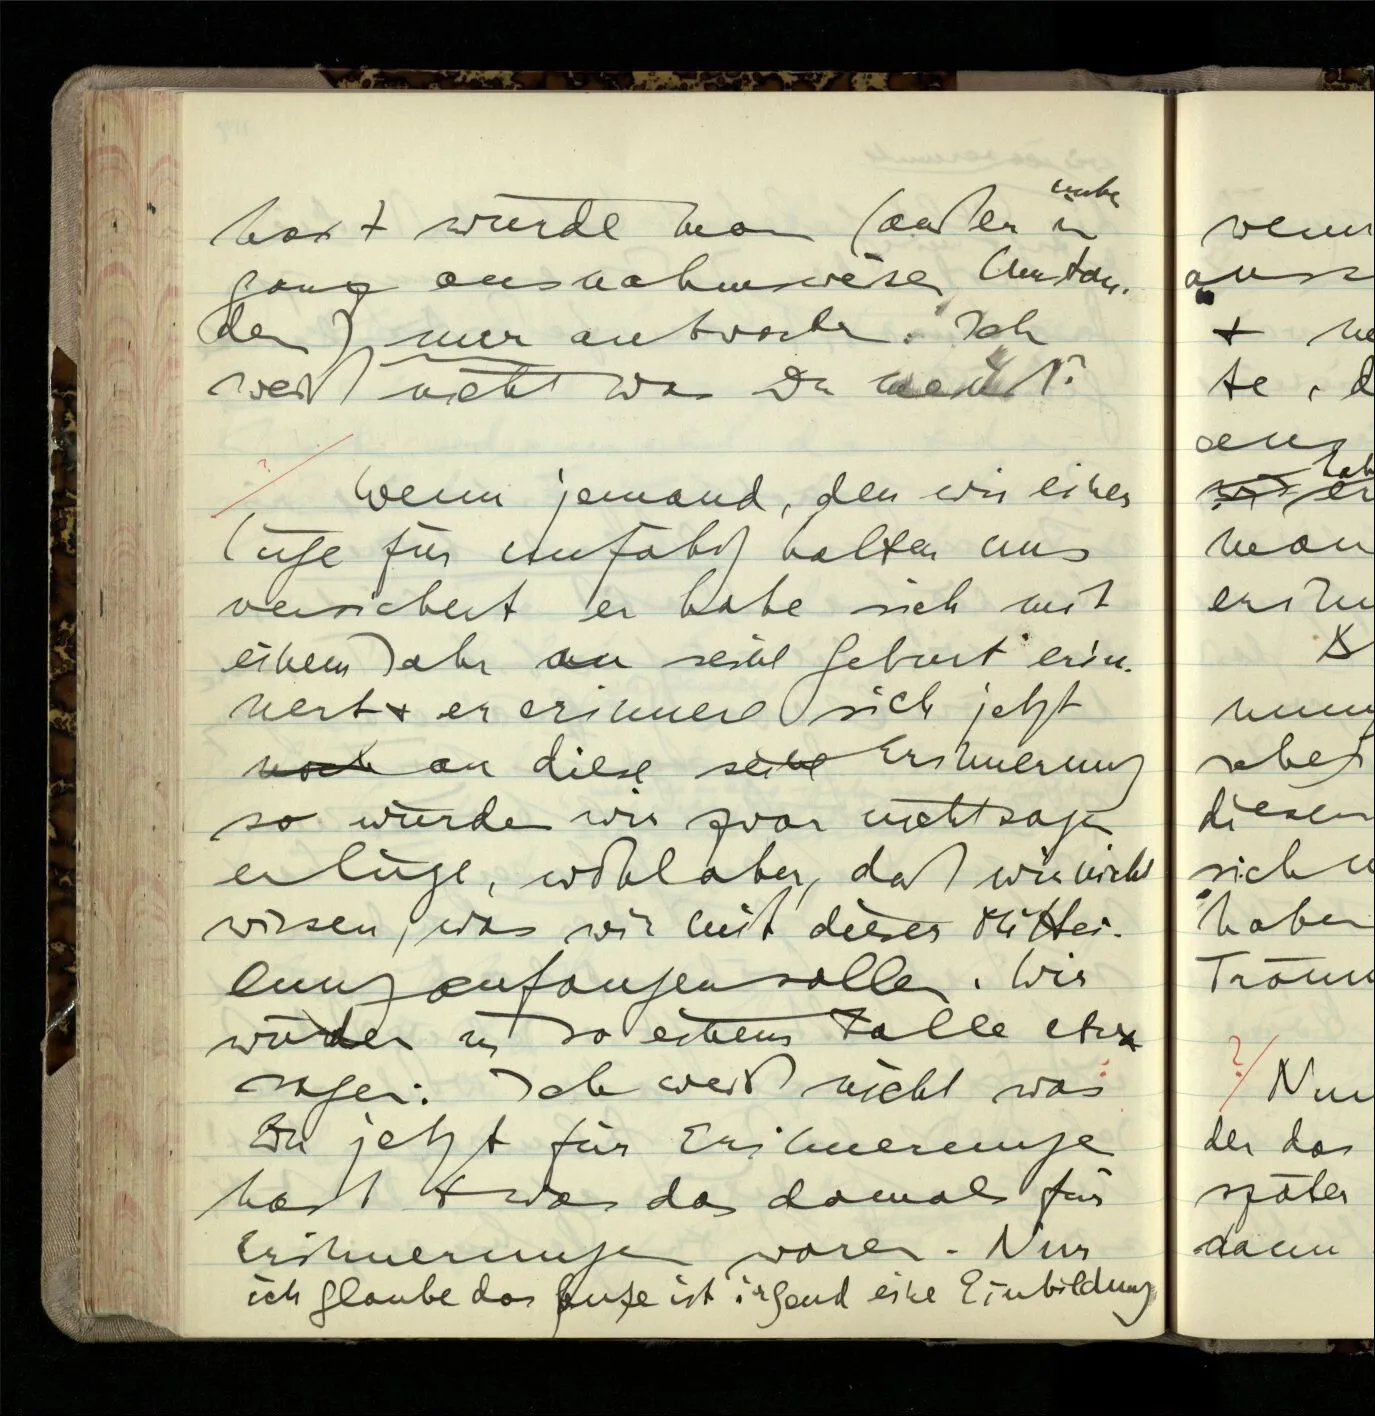 unter
hast & würde man (außer in
ganz ausnahmsweisen Umstän-
den) nur antworten: Ich
weiß nicht was Du meinst?
?/ Wenn jemand, den wir einer
Lüge für unfähig halten uns
versichert er habe sich mit
einem Jahr an seine Geburt erin-
nert & er erinnere sich jetzt
noch an diese seine Erinnerung
so würden wir zwar nicht sagen
er lüge, wohl aber, daß wir nicht
wissen, was wir mit dieser Mittei-
lung anfangen sollen. Wir
würden in so einem Falle etwa
sagen: Ich weiß nicht was
Du jetzt für Erinnerungen
hast & was das damals für
Erinnerungen waren. Nur
ich glaube das ganze ist irgend eine Einbildung
wenn
auss
+
te, d
man
diesem
sich
haben
Träum
?/ Nur
der das
später
dann